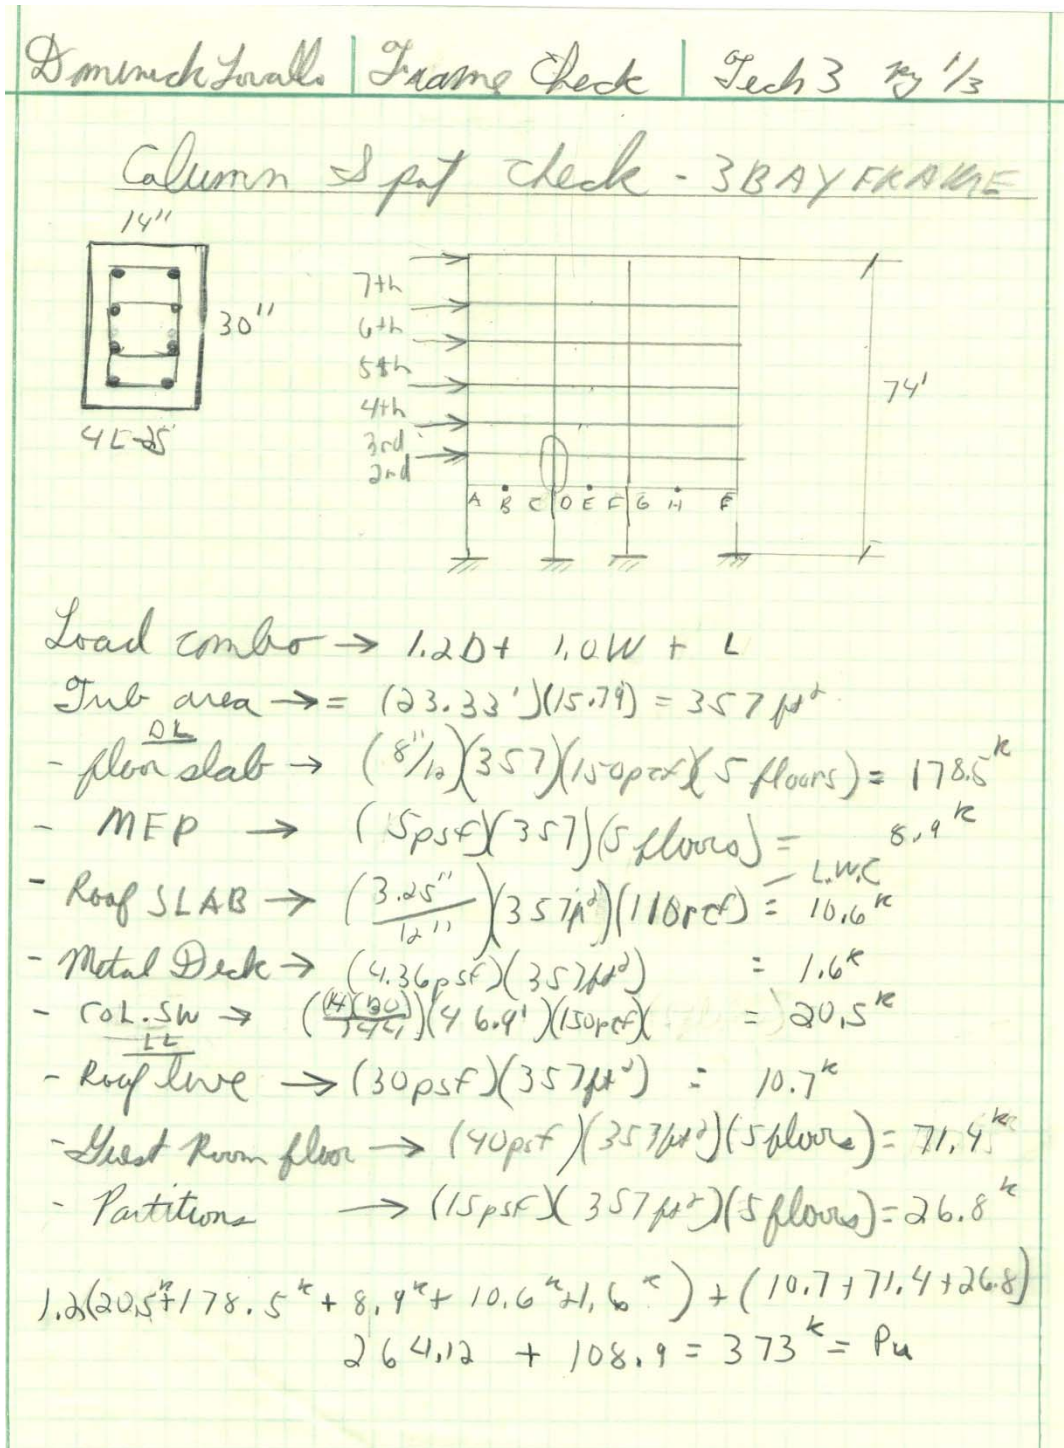 Dominick Lovallo | Frame Check | Tech 3 pg 1/3
Column Spot Check - 3 BAY FRAME
14"
30"
7th
6th
5th
4th
3rd
2nd
74'
A B C D E F G H F
Load combo → 1.2D + 1.0W + L
Trib area → = (23.33')(15.79) = 357 ft²
DL
- floor slab → (8"/12)(357)(150pcf)(5 floors) = 178.5ᵏ
- MEP → (5psf)(357)(5 floors) = 8.9ᵏ
- L.W.C
- Roof SLAB → (3.25"/12")(357ft²)(110pcf) = 10.6ᵏ
- Metal Deck → (4.36psf)(357ft²) = 1.6ᵏ
- COL. SW → ((14)(30)/144)(46.9')(150pcf)( ) = 20.5ᵏ
LL
- Roof live → (30psf)(357ft²) = 10.7ᵏ
- Guest Room floor → (40psf)(357ft²)(5 floors) = 71.4ᵏ
- Partitions → (15psf)(357ft²)(5 floors) = 26.8ᵏ
1.2(20.5ᵏ+178.5ᵏ + 8.9ᵏ + 10.6ᵏ+1.6ᵏ) + (10.7+71.4+26.8)
264.12 + 108.9 = 373ᵏ = Pu